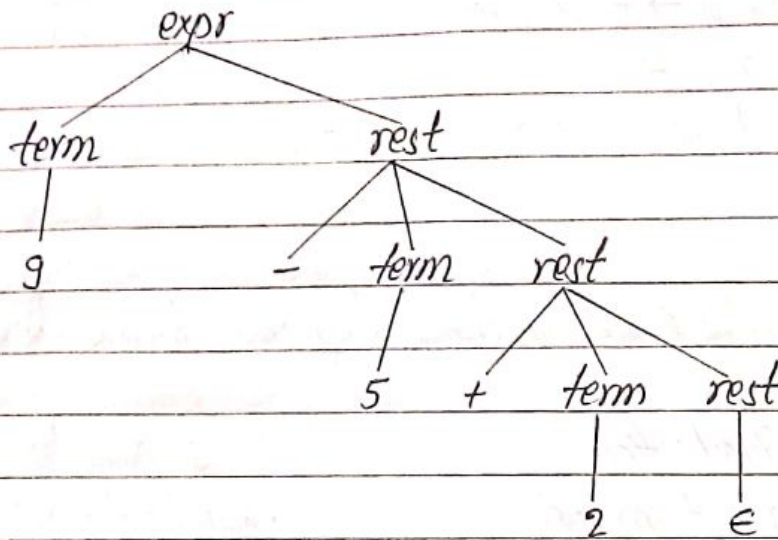 expr
term rest
9 - term rest
5 + term rest
2 ϵ